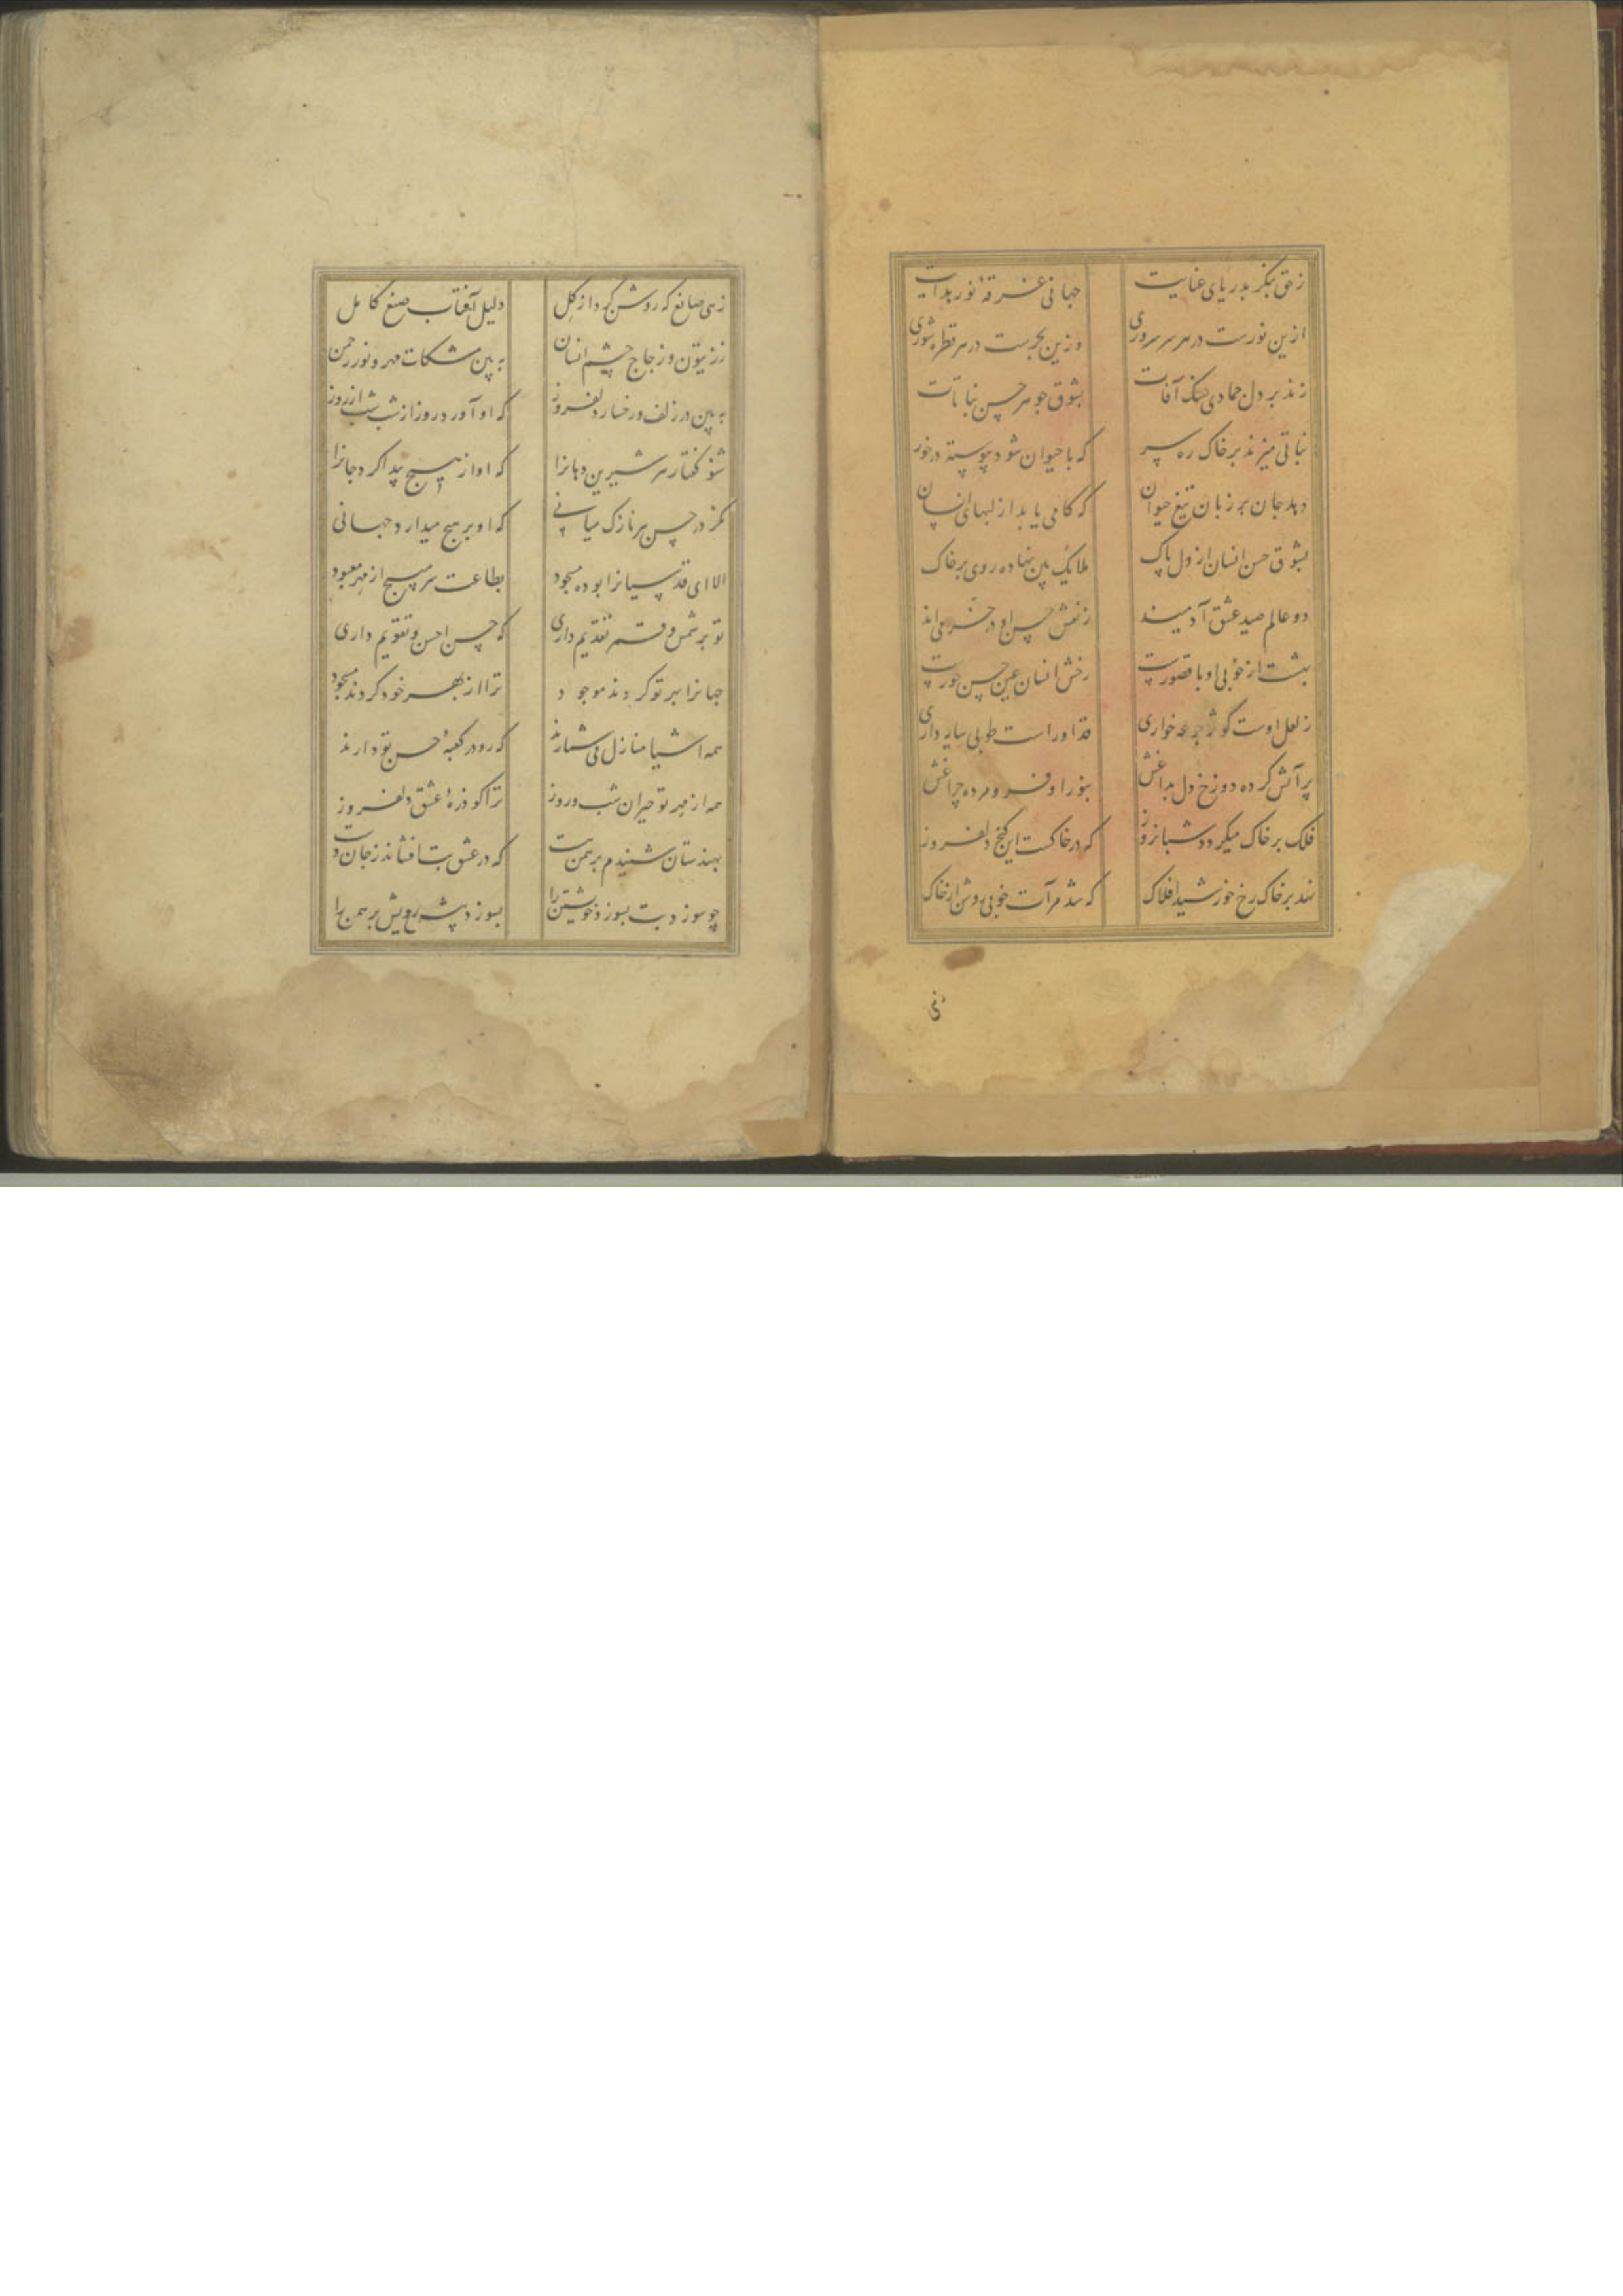 ز حق بنگر بدریای عنایت جهانی غرقهٔ نور هدایت
ازین نورست در هر سر سروری وزین بحرست در هر قطره شوری
زند بر دل جمادی سنک آفات بشوق جوهر حسن نباتات
نباتی میزند بر خاک ره سر که با حیوان شود پیوسته در خور
دهد جان بر زبان تیغ حیوان که کامی یابد از لبهای انسان
بشوق حسن انسان از دل پاک ملائک بین نهاده روی بر خاک
دو عالم صید عشق آدمیند ز نقش حسن او در خرمی‌اند
بهشت از خوبی او با قصورست رخش انسان عین حسن حورست
ز لعل اوست کوثر جرعه خواری قد او راست طوبی سایه داری
پر آتش کرده دوزخ دل بداغش بنور او فرومرده چراغش
فلک بر خاک میگردد شبانروز که در خاکست این گنج دلفروز
نهد بر خاک رخ خورشید افلاک که شد مرآت خوبی روشن از خاک
زهی صانع که روشن کرد از گل دلیل آفتاب صنع کامل
ز زیتون و زجاج چشم انسان به بین مشکات مهر و نور رحمن
به بین در زلف و رخسار دلفروز که او آورد روز از شب شب از روز
شنو گفتار هر شیرین دهانرا که او از هیچ پیدا کرد جانرا
نگر در حسن هر نازک میانی که او بر هیچ میدارد جهانی
الا ای قدسیانرا بوده مسجود بطاعت سر مپیچ از مهر معبود
تو بر شمس و قمر تقدیم داری که حسن احسن و تقویم داری
جهانرا بهر تو کردند موجود ترا از بهر خود کردند مسجود
همه اشیا منازل می شمارند که رو در کعبهٔ حسن تو دارند
همه از مهر تو حیران شب و روز ترا کو ذرهٔ عشق دلفروز
بهندستان شنیدم برهمن هست که در عشق بت افشاند ز جان دست
چو سوزد بت بسوزد خویشتن را بسوزد پیش رویش برهمن را